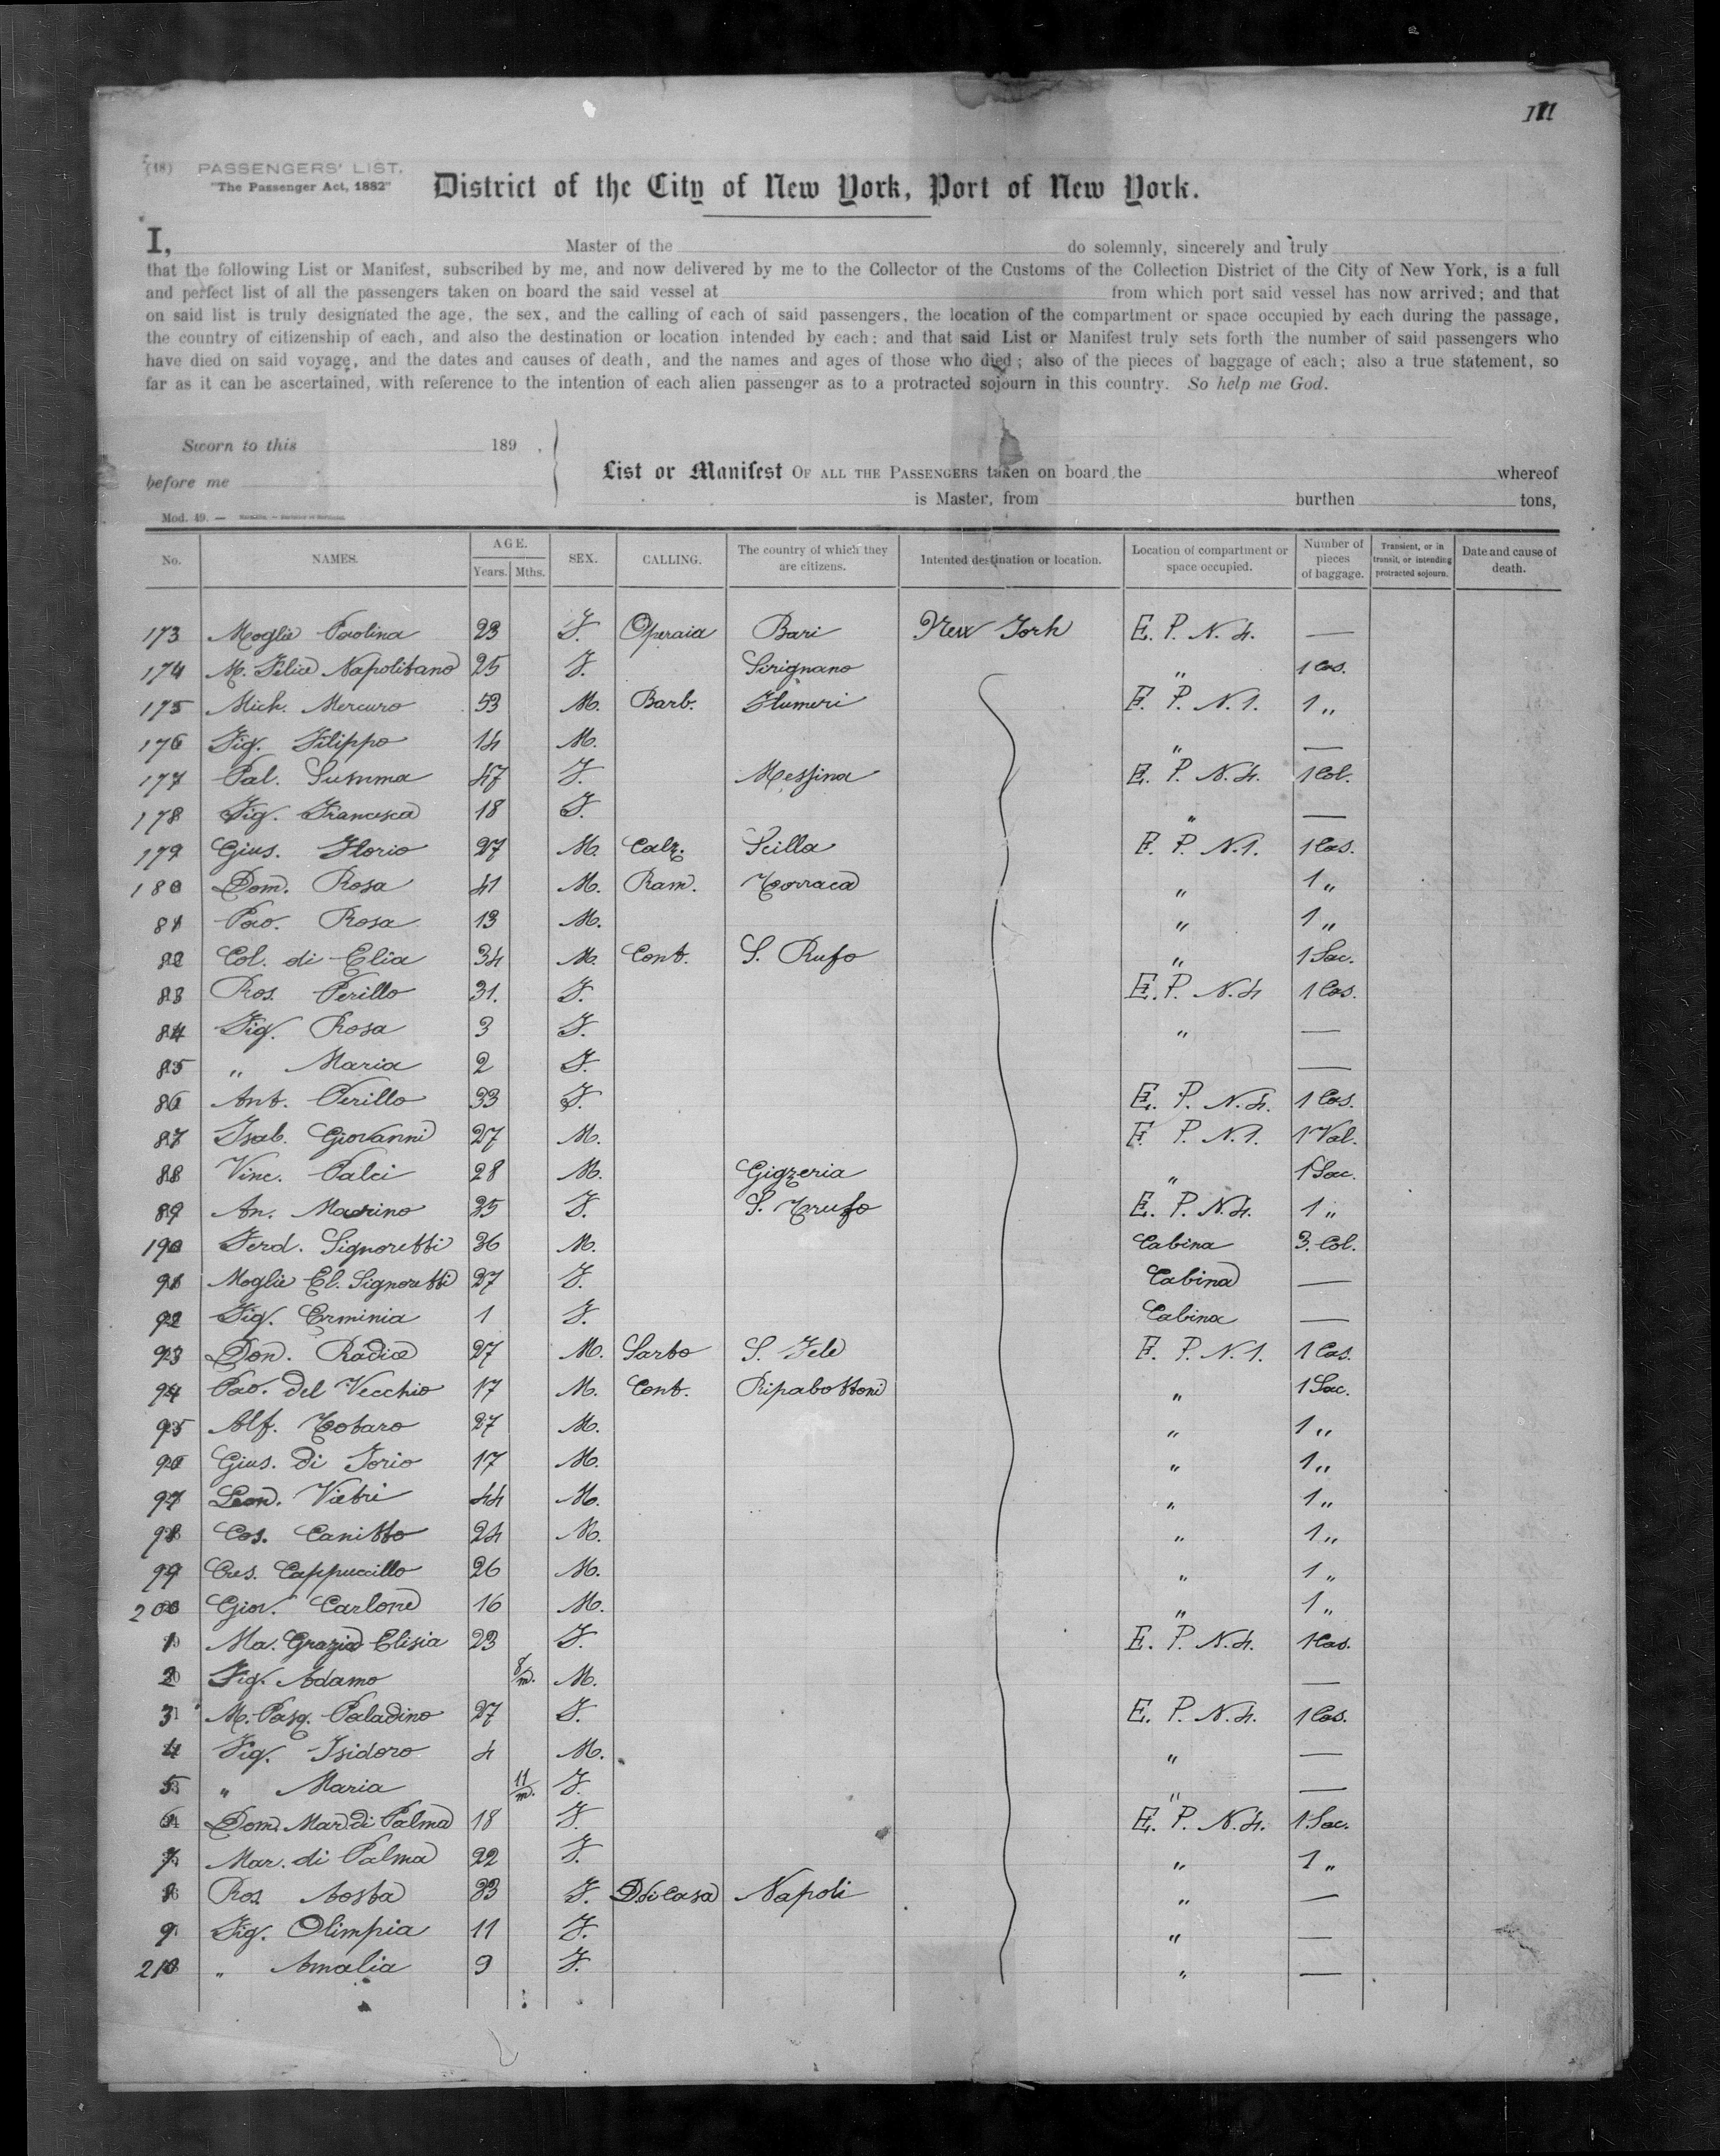 111
(18) PASSENGERS' LIST.
"The Passenger Act, 1882"
District of the City of New York, Port of New York.
I, Master of the do solemnly, sincerely and truly
that the following List or Manifest, subscribed by me, and now delivered by me to the Collector of the Customs of the Collection District of the City of New York, is a full
and perfect list of all the passengers taken on board the said vessel at from which port said vessel has now arrived; and that
on said list is truly designated the age, the sex, and the calling of each of said passengers, the location of the compartment or space occupied by each during the passage,
the country of citizenship of each, and also the destination or location intended by each: and that said List or Manifest truly sets forth the number of said passengers who
have died on said voyage, and the dates and causes of death, and the names and ages of those who died; also of the pieces of baggage of each; also a true statement, so
far as it can be ascertained, with reference to the intention of each alien passenger as to a protracted sojourn in this country. So help me God.
Sworn to this 189 .
before me
List or Manifest OF ALL THE PASSENGERS taken on board the whereof
is Master, from burthen tons,
Mod. 49. —
No. NAMES. AGE. Years. Mths. SEX. CALLING. The country of which they are citizens. Intented destination or location. Location of compartment or space occupied. Number of pieces of baggage. Transient, or in transit, or intending protracted sojourn. Date and cause of death.
173 Moglie Paolina 23 F. Operaia Bari New York E. P. N. 4. —
174 M. Filia Napolitano 25 F. Sirignano " 1 Cas.
175 Mich. Mercuro 53 M. Barb. Flumeri E. P. N. 1. 1 "
176 Fig. Filippo 14 M. " —
177 Pal. Summa 47 F. Messina E. P. N. 4. 1 Col.
178 Fig. Francesca 18 F. " —
179 Gius. Florio 27 M. Calz. Scilla E. P. N. 1. 1 Cas.
180 Dom. Rosa 41 M. Ram. Torraca " 1 "
81 Pao. Rosa 13 M. " 1 "
82 Col. di Elia 34 M. Cont. S. Rufo " 1 Sac.
83 Ros. Perillo 31. F. E. P. N. 4 1 Cas.
84 Fig. Rosa 3 F. " —
85 " Maria 2 F. —
86 Ant. Perillo 33 F. E. P. N. 4. 1 Cas.
87 Isab. Giovanni 27 M. E. P. N. 1. 1 Val.
88 Vinc. Palci 28 M. Gigzeria " 1 Sac.
89 An. Marino 35 F. S. Trufo E. P. N. 4. 1 "
190 Ferd. Signoretti 36 M. Cabina 3. Col.
91 Moglie El. Signoretti 27 F. Cabina —
92 Fig. Erminia 1 F. Cabina —
93 Don. Radice 27 M. Sarto S. Fele E. P. N. 1. 1 Cas.
94 Pao. del Vecchio 17 M. Cont. Ripabottoni " 1 Sac.
95 Alf. Totaro 27 M. " 1 "
96 Gius. di Iorio 17 M. " 1 "
97 Leon. Vietri 44 M. " 1 "
98 Cos. Canitto 24 M. " 1 "
99 Cres. Cappuccillo 26 M. " 1 "
200 Giov. Carlone 16 M. " 1 "
1 Ma. Grazia Elisia 23 F. E. P. N. 4. 1 Cas.
2 Fig. Adamo 8/m. M. —
3 M. Pasq. Paladino 27 F. E. P. N. 4. 1 Cas.
4 Fig. Isidoro 4 M. " —
5 " Maria 11/m. F. " —
6 Dom. Mar. di Palma 18 F. E. P. N. 4. 1. Sac.
7 Mar. di Palma 22 F. " 1 "
8 Ros. Aosta 33 F. D. di Casa Napoli " —
9 Fig. Olimpia 11 F. " —
210 " Amalia 9 F. " —